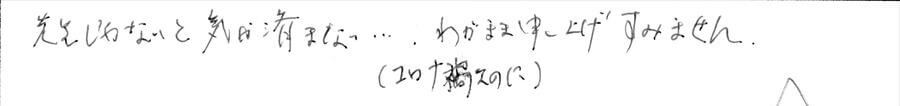 先生じゃないと気が済まない…. わがまま申し上げすみません.
(コロナ禍なのに)